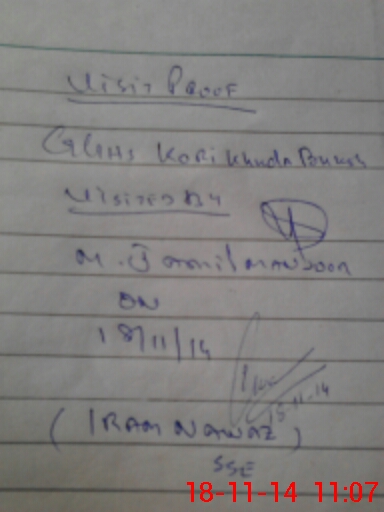 Visit Proof
GGHS Kori Khuda Bukhsh
Visited By
M. Jamil Manzoor
on
18/11/14
18-11-14
(IRAM NAWAZ)
SSE
18-11-14 11:07